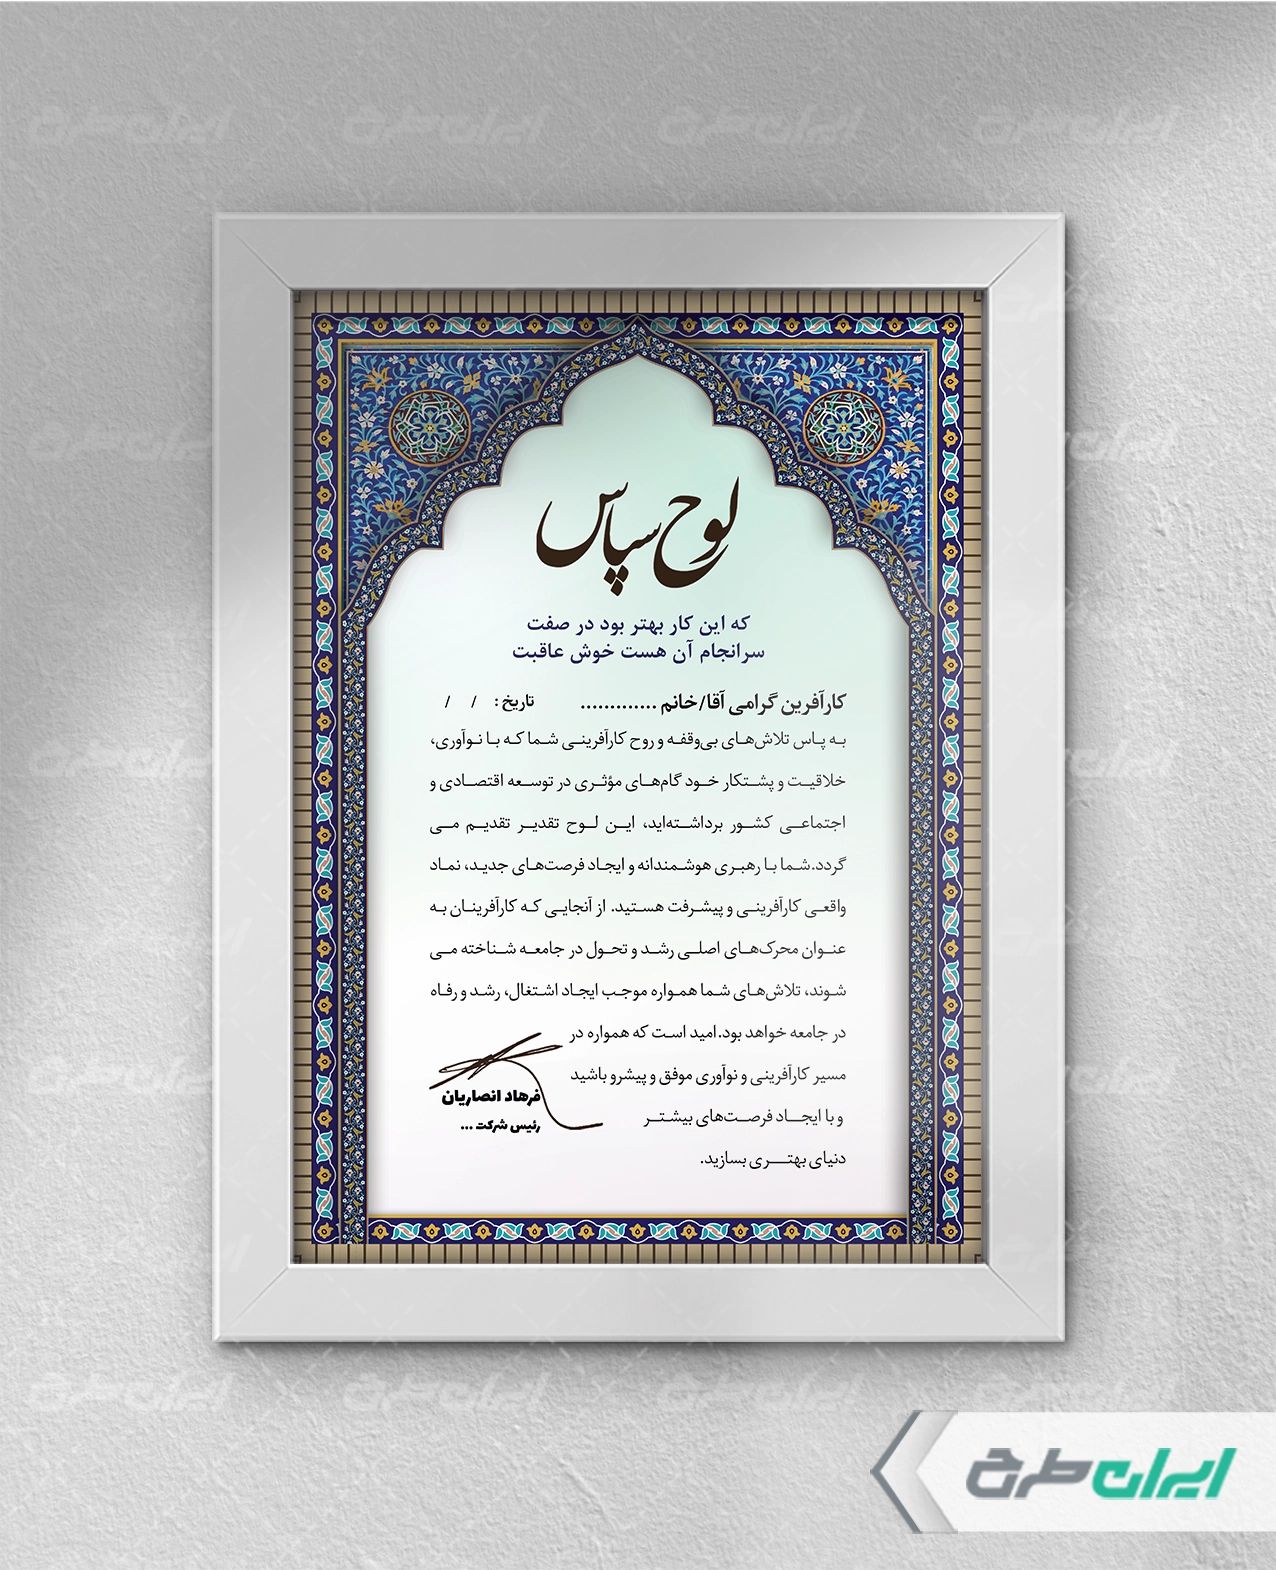 لوح سپاس
که این کار بهتر بود در صفت
سرانجام آن هست خوش عاقبت
کارآفرین گرامی آقا/خانم ............. تاریخ : / /
به پاس تلاش‌های بی‌وقفه و روح کارآفرینی شما که با نوآوری،
خلاقیت و پشتکار خود گام‌های مؤثری در توسعه اقتصادی و
اجتماعی کشور برداشته‌اید، این لوح تقدیر تقدیم می
گردد.شما با رهبری هوشمندانه و ایجاد فرصت‌های جدید، نماد
واقعی کارآفرینی و پیشرفت هستید. از آنجایی که کارآفرینان به
عنوان محرک‌های اصلی رشد و تحول در جامعه شناخته می
شوند، تلاش‌های شما همواره موجب ایجاد اشتغال، رشد و رفاه
در جامعه خواهد بود.امید است که همواره در
مسیر کارآفرینی و نوآوری موفق و پیشرو باشید
و با ایجاد فرصت‌های بیشتر
دنیای بهتری بسازید.
فرهاد انصاریان
رئیس شرکت ...
ایران طرح